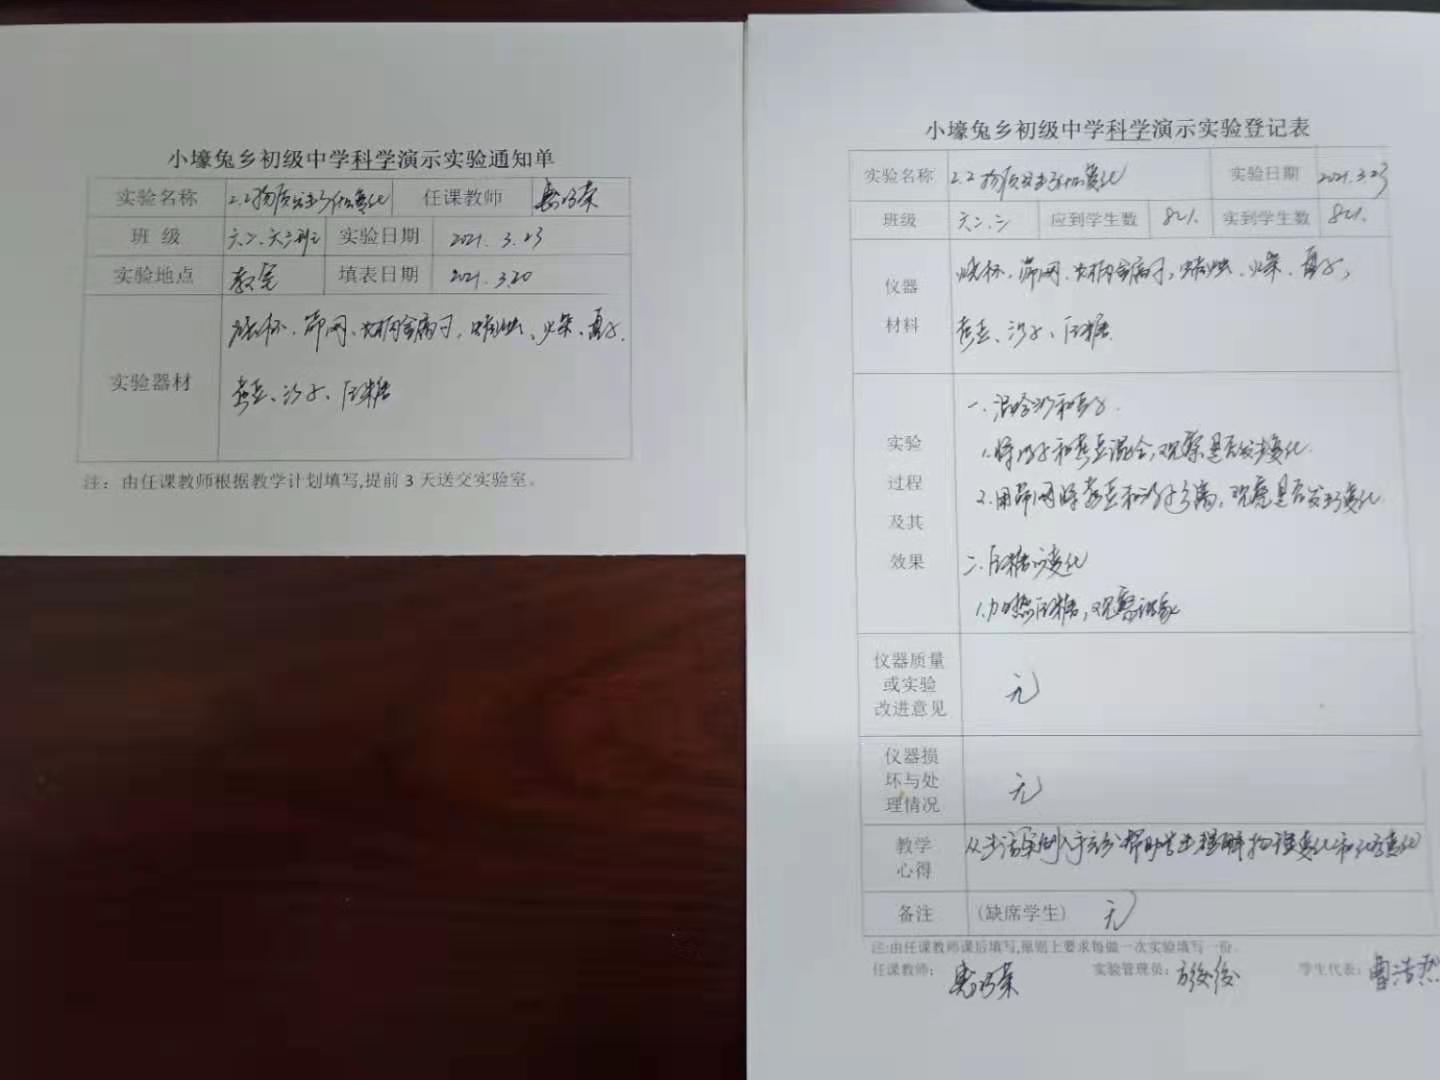 小壕兔乡初级中学科学演示实验通知单
实验名称 2.2物质发生了什么变化 任课教师
班 级 六二、六三班 实验日期 2021.3.23
实验地点 教室 填表日期 2021.3.20
实验器材 烧杯、筛网、长柄金属勺、蜡烛、火柴、盘子、
黄豆、沙子、白糖
注：由任课教师根据教学计划填写,提前3天送交实验室。
小壕兔乡初级中学科学演示实验登记表
实验名称 2.2物质发生了什么变化 实验日期 2021.3.23
班级 六二、三 应到学生数 82人 实到学生数 82人
仪器 烧杯、筛网、长柄金属勺、蜡烛、火柴、盘子、
材料 黄豆、沙子、白糖
实验过程及其效果
一.混合沙和豆子.
1.将沙子和黄豆混合,观察是否发生变化.
2.用筛网将黄豆和沙子分离,观察是否发生了变化.
二.白糖的变化
1.加热白糖,观察现象
仪器质量或实验改进意见 无
仪器损坏与处理情况 无
教学心得 从生活实例入手 帮助学生理解物理变化和化学变化
备注 (缺席学生) 无
注:由任课教师课后填写,原则上要求每做一次实验填写一份.
任课教师: 实验管理员: 学生代表: 曹浩然